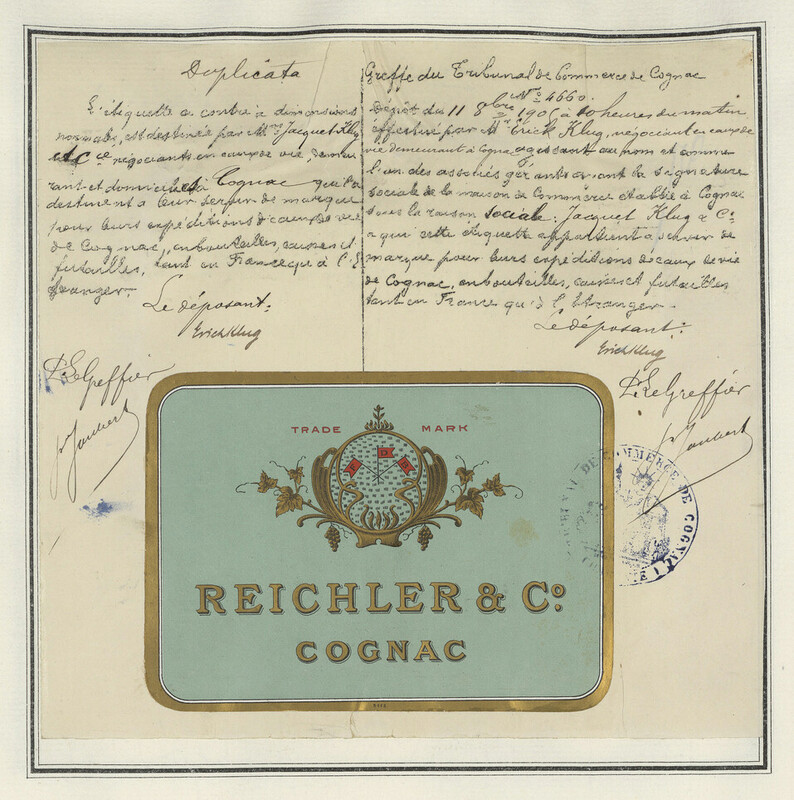 Duplicata
L'étiquette ci contre à dimensions
normale, est destinée par Mrs Jacquet Klug
& Cie négociants en eaux de vie, demeu
rant et domiciliés à Cognac qui la
destinent à leur servir de marque
pour leurs expéditions d'eaux de vie
de Cognac, en bouteilles, caisses et
futailles, tant en France qu'à l'É
tranger.
Le déposant:
Erich Klug
P. Le Greffier
Greffe du Tribunal de Commerce de Cognac
No 4660.
Dépôt du 11 8bre à 10 heures du matin
effectué par Mr Erick Klug, négociant en eaux de
vie demeurant à Cognac agissant au nom et comme
l'un des associés gérants ayant la signature
sociale de la maison de Commerce établie à Cognac
sous la raison sociale: Jacquet Klug & Co
à qui cette étiquette appartient à servir de
marque pour leurs expéditions d'eaux de vie
de Cognac, en bouteilles, caisses et futailles
tant en France qu'à l'Étranger.
Le déposant:
Erich Klug
P. Le Greffier
TRADE MARK
REICHLER & Co.
COGNAC
DE COMMERCE DE COGNAC